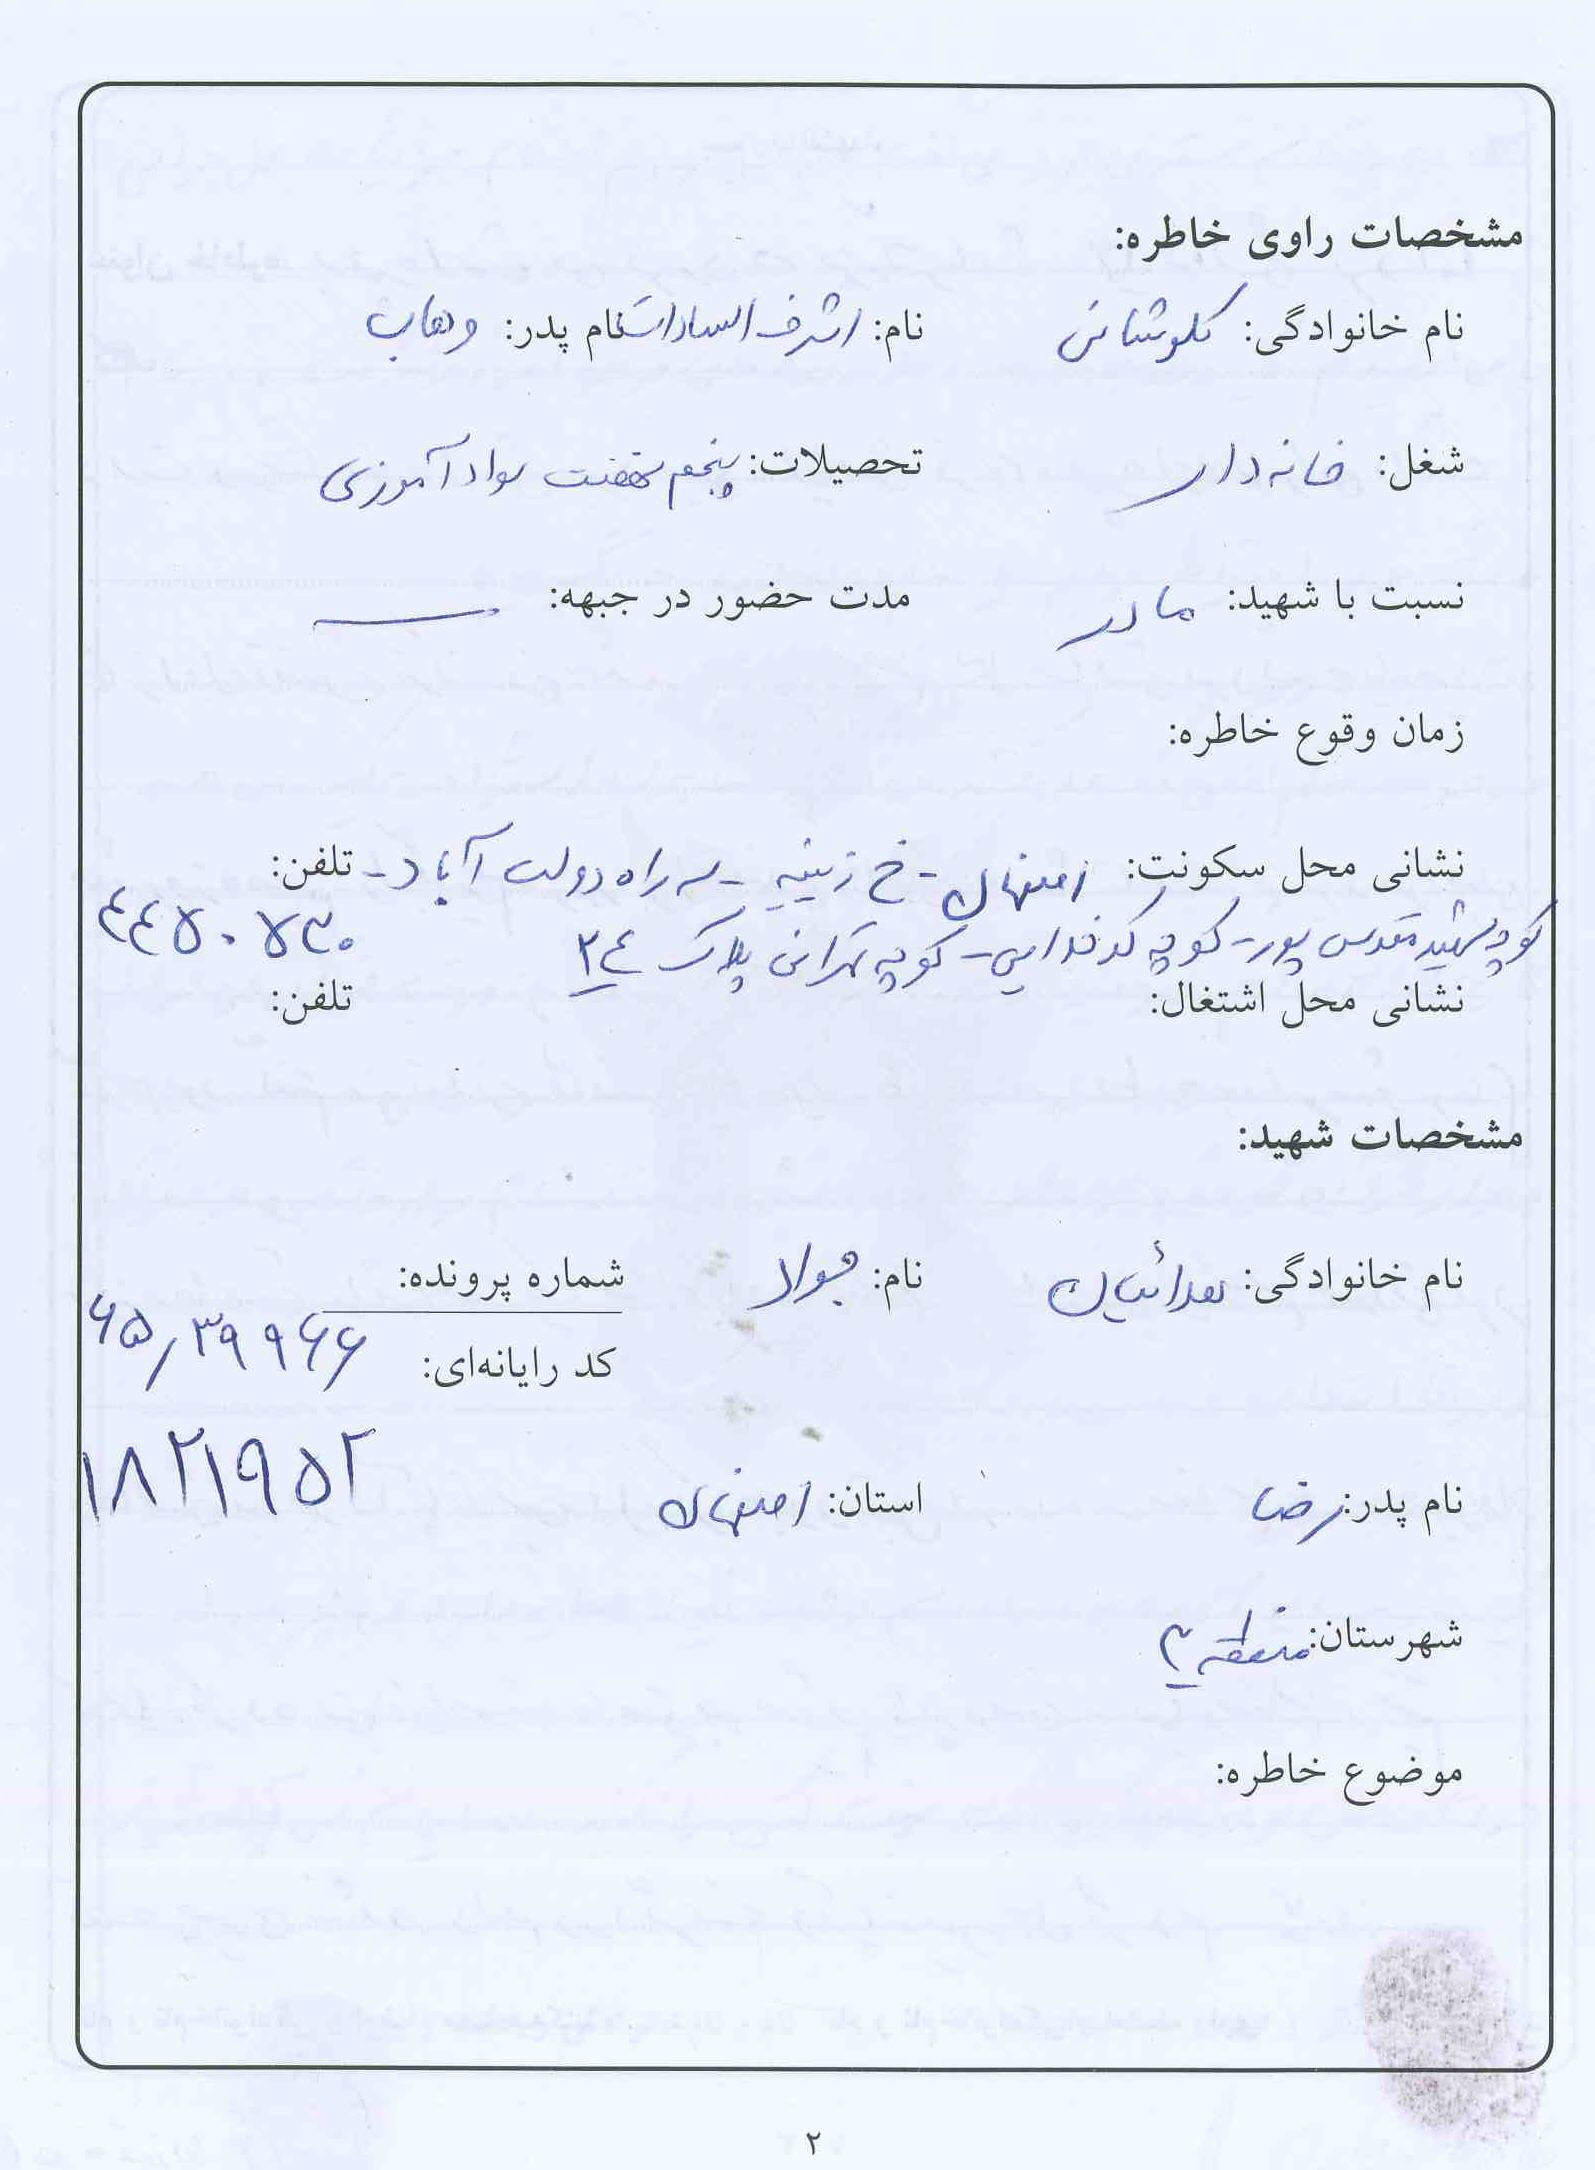 مشخصات راوی خاطره:
نام خانوادگی: گلوشانی نام: اشرف السادات نام پدر: وهاب
شغل: خانه دار تحصیلات: پنجم نهضت سوادآموزی
نسبت با شهید: مادر مدت حضور در جبهه: ـــ
زمان وقوع خاطره:
نشانی محل سکونت: اصفهان - خ زینبیه - سه راه دولت آباد - تلفن:
کوچه شهید مقدس پور - کوچه کدخدایی - کوچه تهرانی پلاک ۳۴ ۴۴۵۰۷۳۰
نشانی محل اشتغال: تلفن:
مشخصات شهید:
نام خانوادگی: نام: جواد شماره پرونده:
۶۵/۳۹۹۶۶
کد رایانه‌ای:
۱۸۲۱۹۵۲
نام پدر: رضا استان: اصفهان
شهرستان: منطقه ۳
موضوع خاطره:
۲